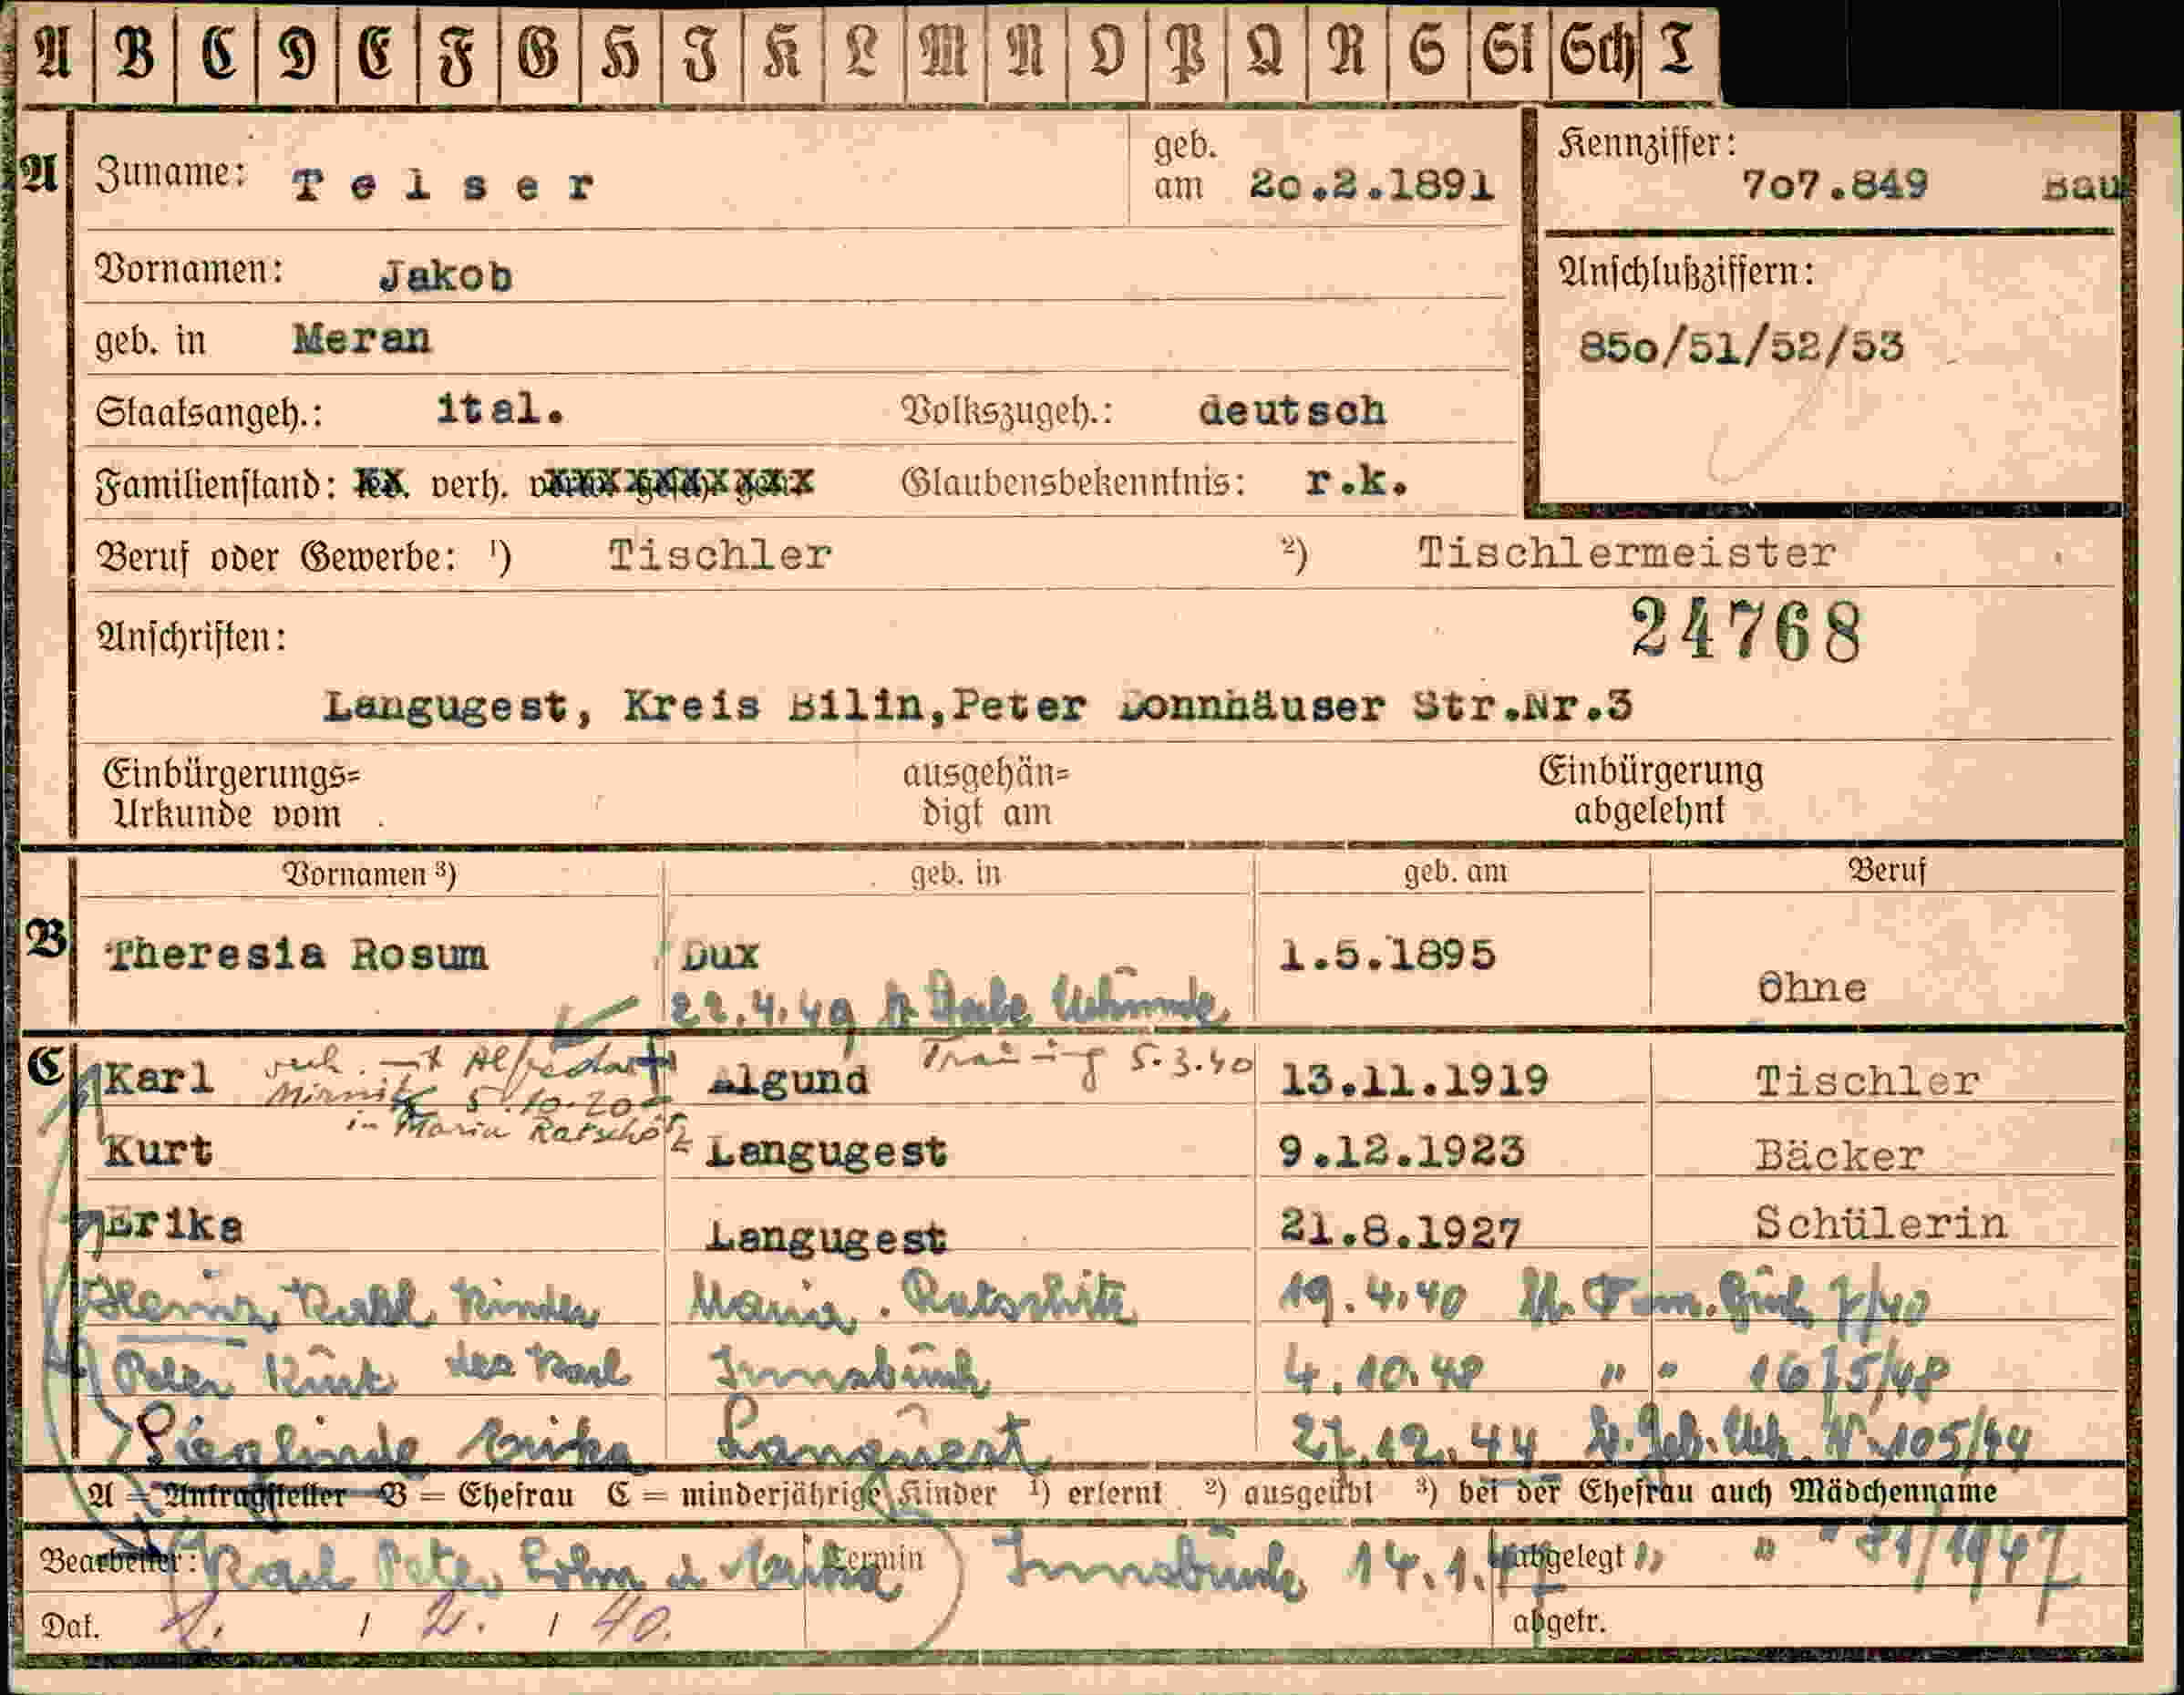 A B C D E F G H J K L M N O P Q R S St Sch T
A
Zuname: Telser
geb. am 20.2.1891
Kennziffer:
707.849 Bau
Vornamen: Jakob
Anschlußziffern:
850/51/52/53
geb. in Meran
Staatsangeh.: ital. Volkszugeh.: deutsch
Familienstand: verh. Glaubensbekenntnis: r.k.
Beruf oder Gewerbe: 1) Tischler 2) Tischlermeister
Anschriften: 24768
Langugest, Kreis Bilin,Peter Donnhäuser Str.Nr.3
Einbürgerungs= Urkunde vom
ausgehän= digt am
Einbürgerung abgelehnt
Vornamen 3) geb. in geb. am Beruf
B
Theresia Rosum Dux 1.5.1895 Ohne
22.4.49
C
Karl Algund 13.11.1919 Tischler
verh. mit 5.3.40
5.10.20
in Maria Ratschitz
Kurt Langugest 9.12.1923 Bäcker
Erika Langugest 21.8.1927 Schülerin
Kinder Maria Ratschitz 19.4.40 7/40
Peter Kurt des Karl Innsbruck 4.10.48 " " 1675/48
Sieglinde Erika Langugest 27.12.44 Geb. Urk. N. 105/44
A = Antragsteller B = Ehefrau C = minderjährige Kinder 1) erlernt 2) ausgeübt 3) bei der Ehefrau auch Mädchenname
Bearbeiter: Karl Peter Termin Innsbruck 14.1.47 abgelegt " " 71/1947
Dat. 2. / 2. / 40. abgetr.